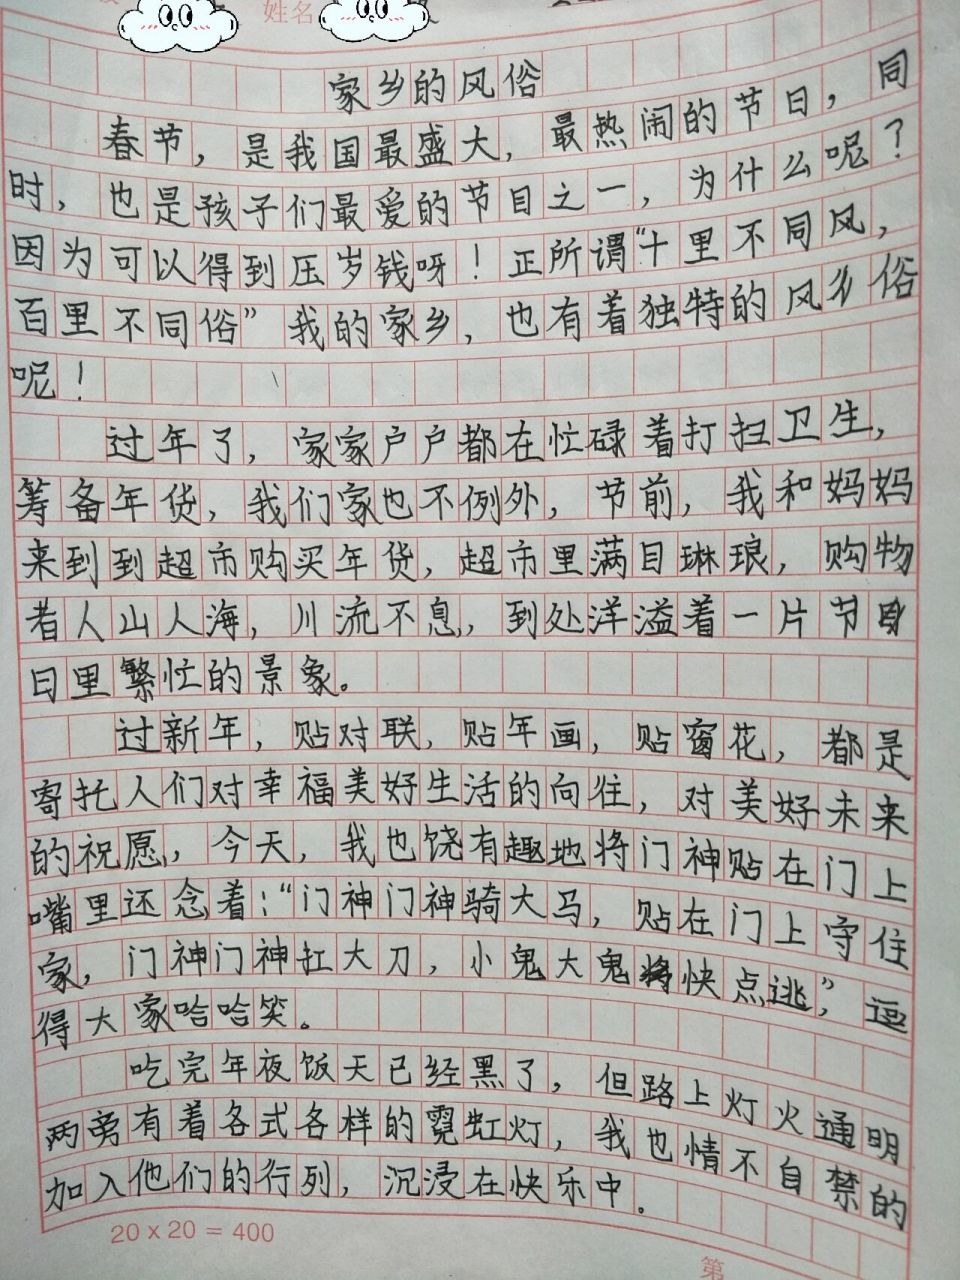 姓名
家乡的风俗
春节，是我国最盛大，最热闹的节日，同
时，也是孩子们最爱的节目之一，为什么呢？
因为可以得到压岁钱呀！正所谓“十里不同风，
百里不同俗”我的家乡，也有着独特的风乡俗
呢！
过年了，家家户户都在忙碌着打扫卫生，
筹备年货，我们家也不例外，节前，我和妈妈
来到到超市购买年货，超市里满目琳琅，购物
者人山人海，川流不息，到处洋溢着一片节
日里繁忙的景象。
过新年，贴对联，贴年画，贴窗花，都是
寄托人们对幸福美好生活的向往，对美好未来
的祝愿，今天，我也饶有趣地将门神贴在门上
嘴里还念着：“门神门神骑大马，贴在门上守住
家，门神门神扛大刀，小鬼大鬼快点逃，”逗
得大家哈哈笑。
吃完年夜饭天已经黑了，但路上灯火通明
两旁有着各式各样的霓虹灯，我也情不自禁的
加入他们的行列，沉浸在快乐中。
20 x 20 = 400
第